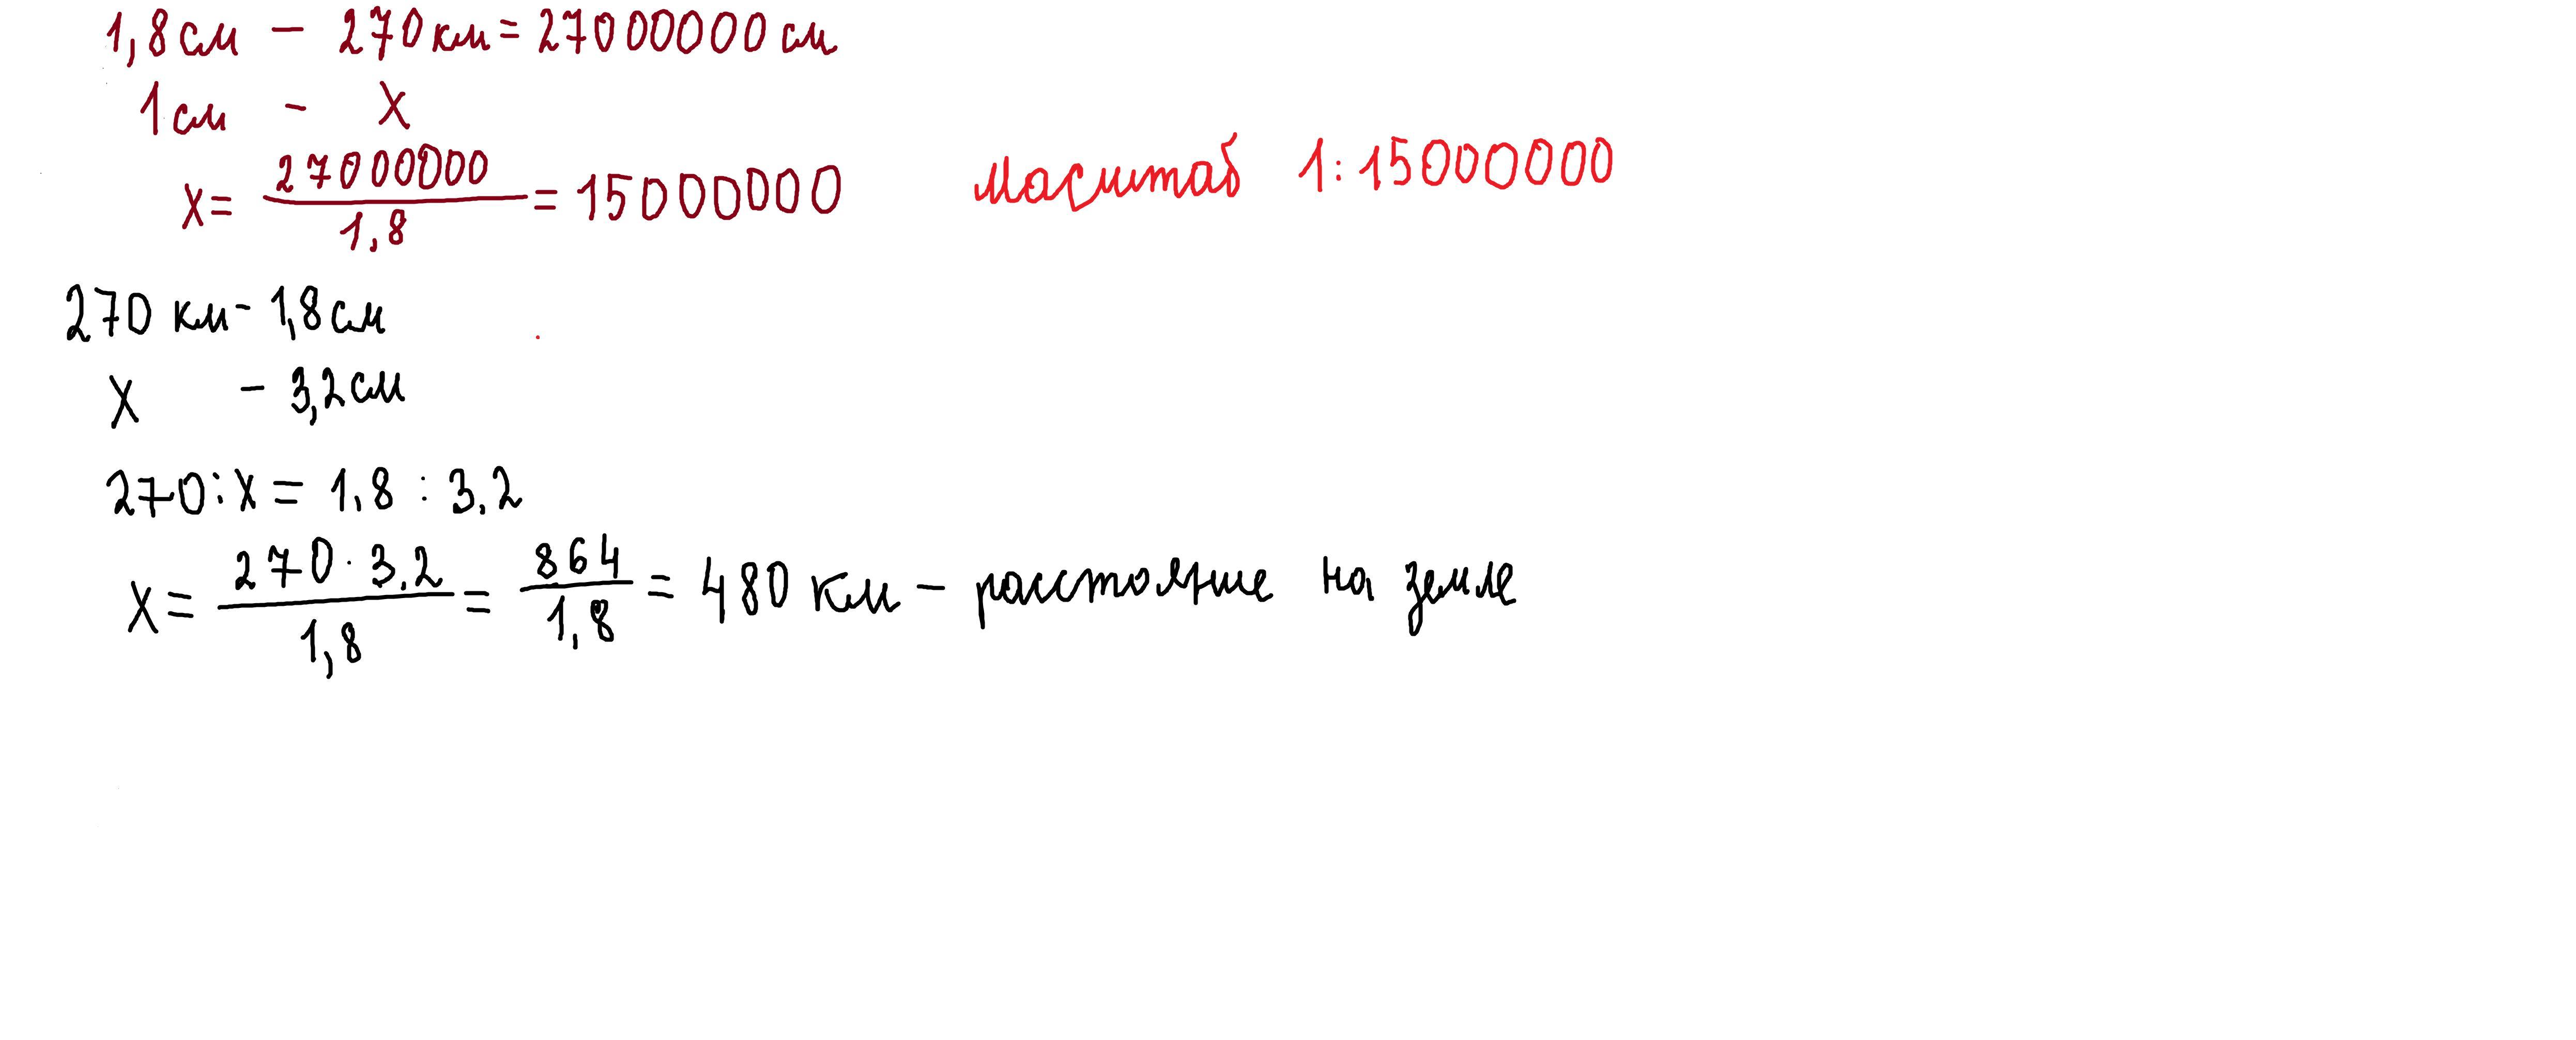 1,8 см - 270 км = 27000000 см
1 см - х
х = 27000000 / 1,8 = 15000000
масштаб 1:15000000
270 км - 1,8 см
х - 3,2 см
270 : х = 1,8 : 3,2
х = 270 · 3,2 / 1,8 = 864 / 1,8 = 480 км - расстояние на земле